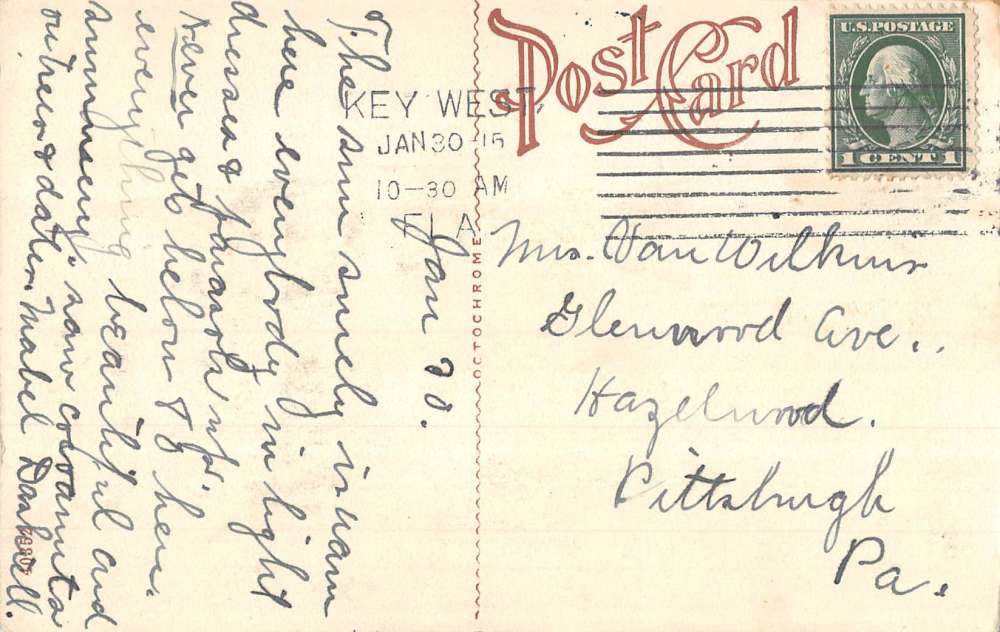 Post Card
U.S. POSTAGE
1 CENT 1
KEY WEST,
JAN 30 15
10-30 AM
FLA
OCTOCHROME
Jan 30.
The sun surely is warm
here everybody in light
dresses & parasols up.
Never gets below here.
everything beautiful and
summery. saw cocoanuts
on trees & dates. Mabel
Mrs. Van Wilkins
Glenwood Ave.
Hazelwood.
Pittsburgh
Pa.